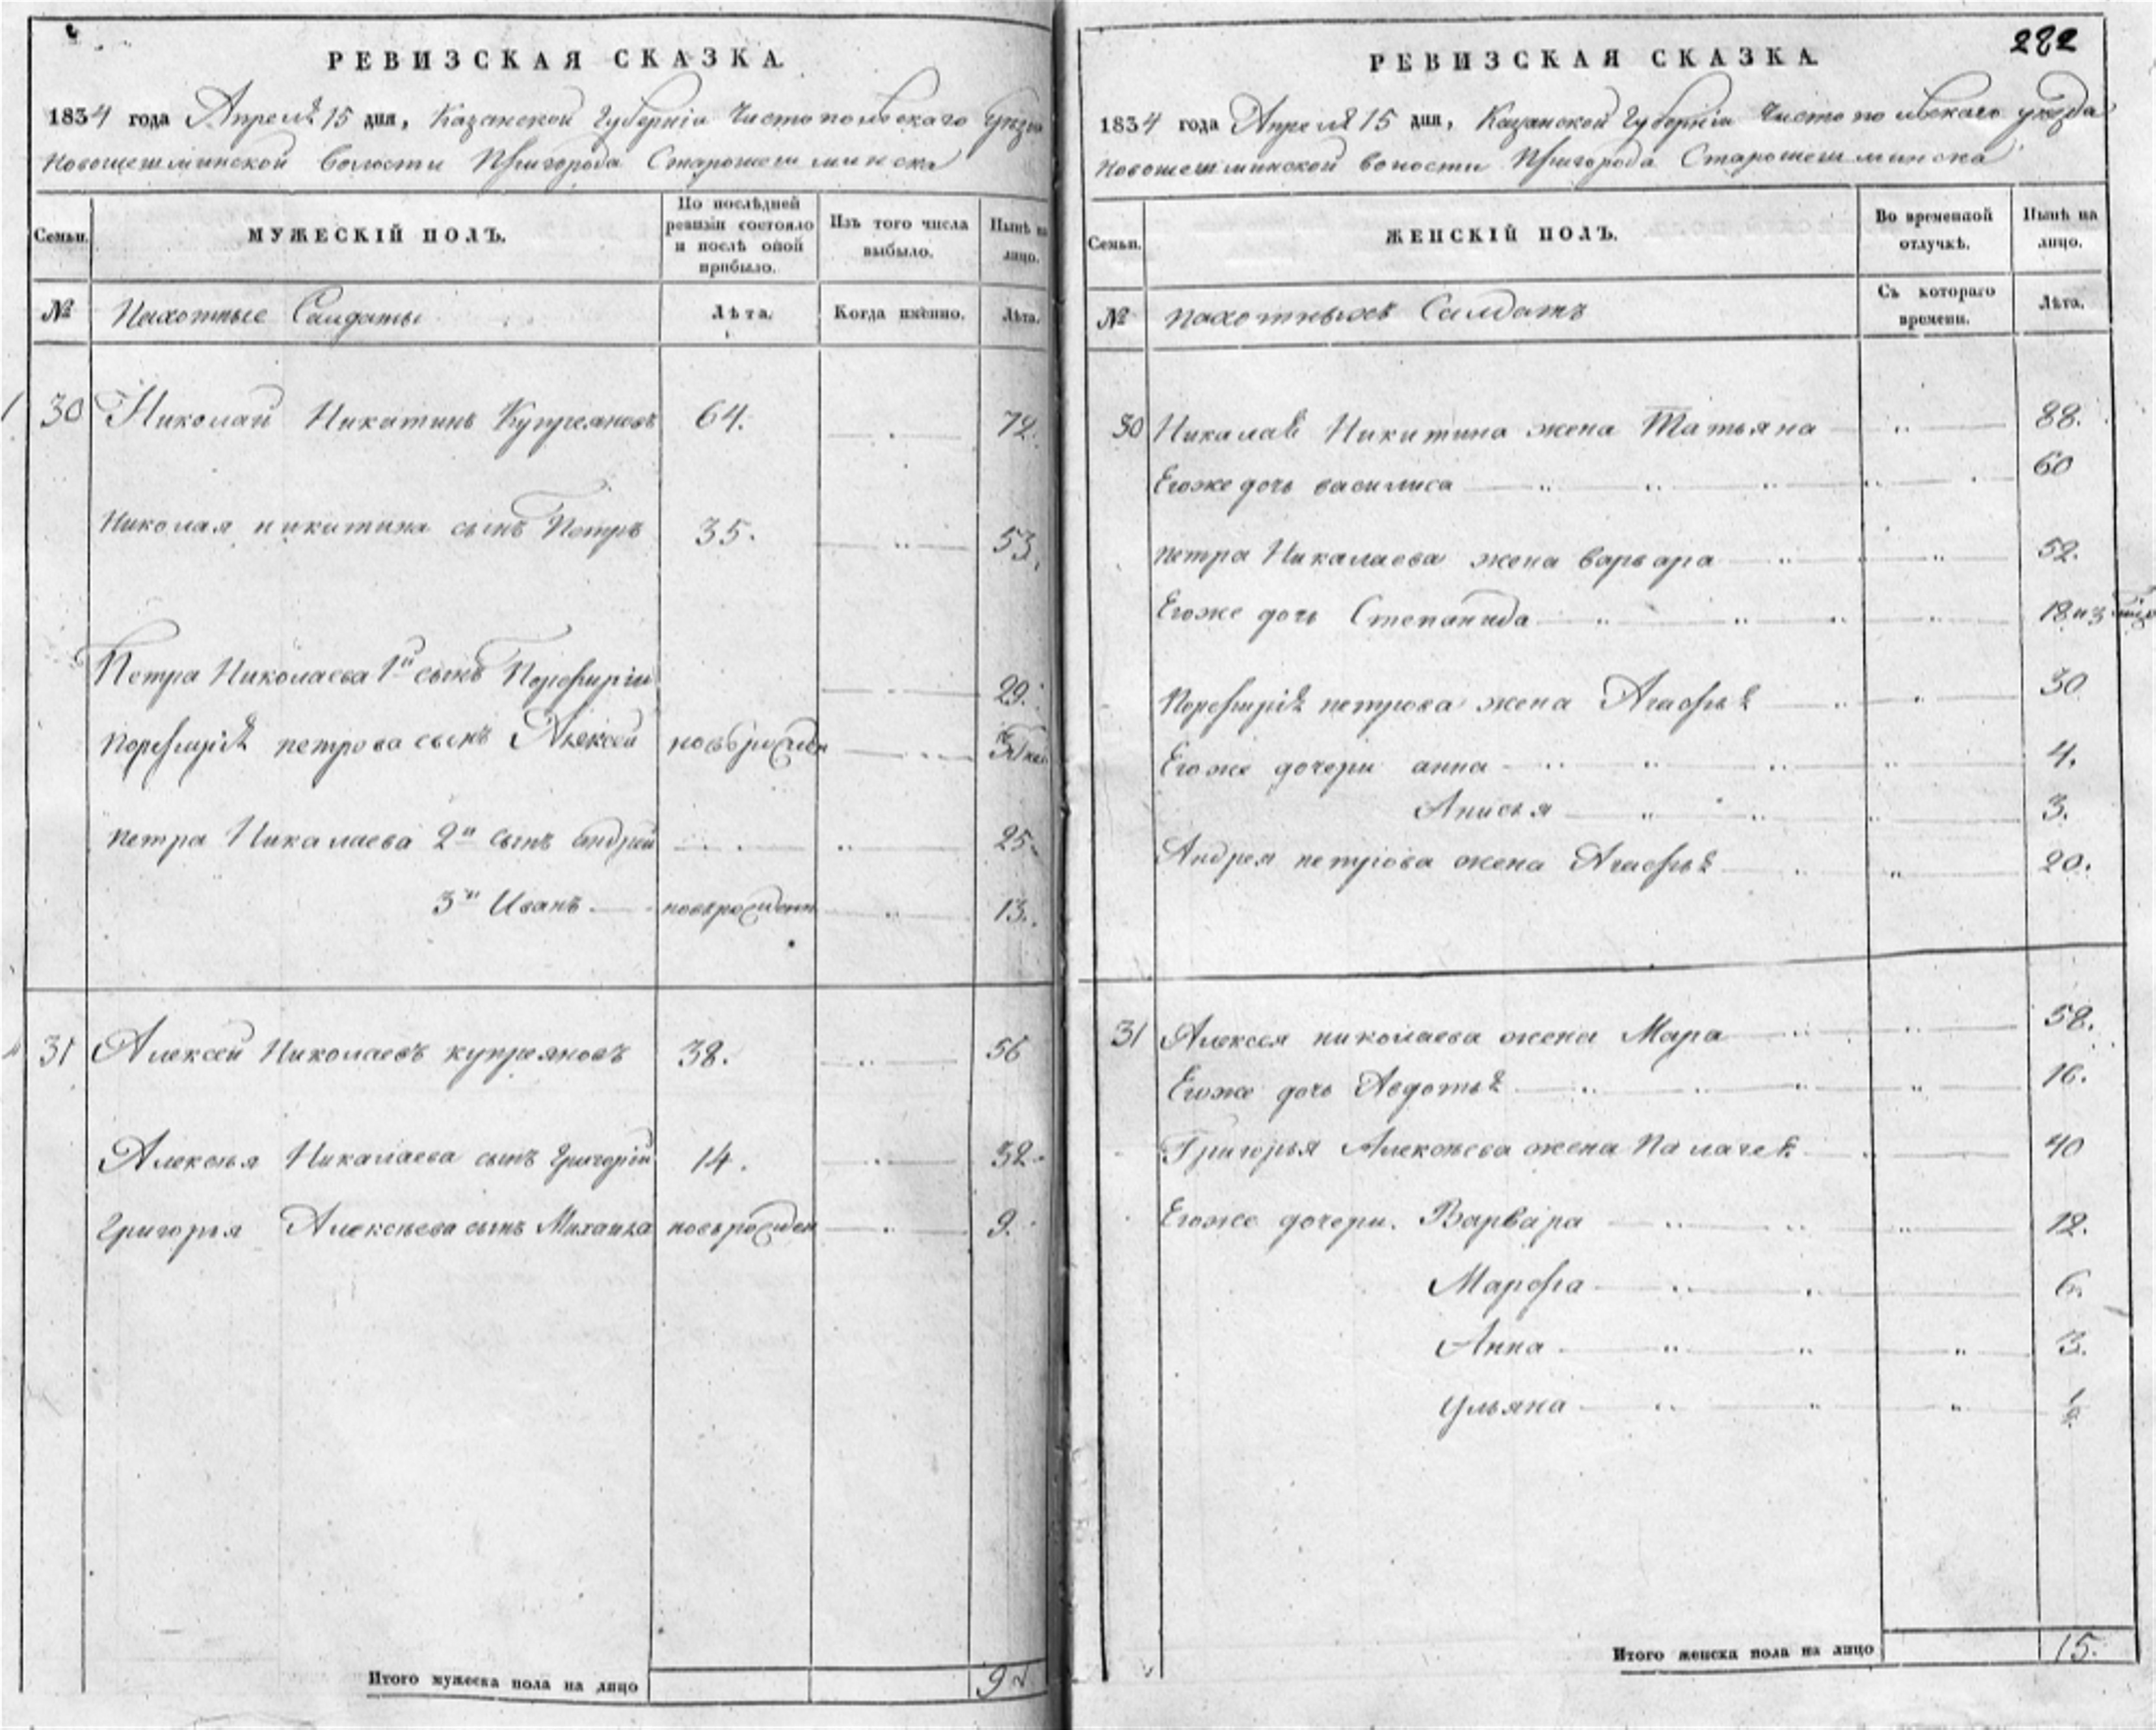 РЕВИЗСКАЯ СКАЗКА.
1834 года Апреля 15 дня, Казанской Губернiи Чистопольского уезда
Новошешминской Волости Пригорода Старошешминска
Семьи.
МУЖЕСКІЙ ПОЛЪ.
По послѣдней ревизіи состояло и послѣ оной прибыло.
Изъ того числа выбыло.
Нынѣ на лицо.
№
Пахотные Салдаты
Лѣта.
Когда имѣнно.
Лѣта.
30 Николай Никитинъ Купреяновъ 64. 72.
Николая никитина сынъ Петръ 35. 53.
Петра Николаева 1й сынъ Перефирiи 29.
Перефирiя петрова сынъ Алексей новорожден
Петра Никалаева 2й сынъ андрей 25.
3й Иванъ новорожденн 13.
31 Алексей Николаевъ купреяновъ 38. 56
Алексья Никалаева сынъ Григорiй 14. 32.
Григорья Алексьева сынъ Михаила новорожден 9.
Итого мужеска пола на лицо 9
282
РЕВИЗСКАЯ СКАЗКА.
1834 года Апреля 15 дня, Казанской Губернiи Чистопольскаго уезда
Новошешминской волости Пригорода Старошешминска
Семьи.
ЖЕНСКІЙ ПОЛЪ.
Во временной отлучкѣ.
Нынѣ на лицо.
№
пахотныхъ Салдатъ
Съ котораго времени.
Лѣта.
30 Никалая Никитина жена Татьяна 88.
Егоже дочь василиса 60
петра Никалаева жена варвара 52.
Егоже дочь Степанида 18
Перефирiя петрова жена Агафья 30
Егоже дочери анна 4.
Анисья 3.
Андрея петрова жена Агафья 20.
31 Алексея николаева жена Мара 58.
Егоже дочь Авдотья 16.
Григорья Алексьева жена Палагея 40
Егоже дочери. Варвара 12.
Марфа 6.
Анна 3.
Ульяна ½
Итого женска пола на лицо 15.